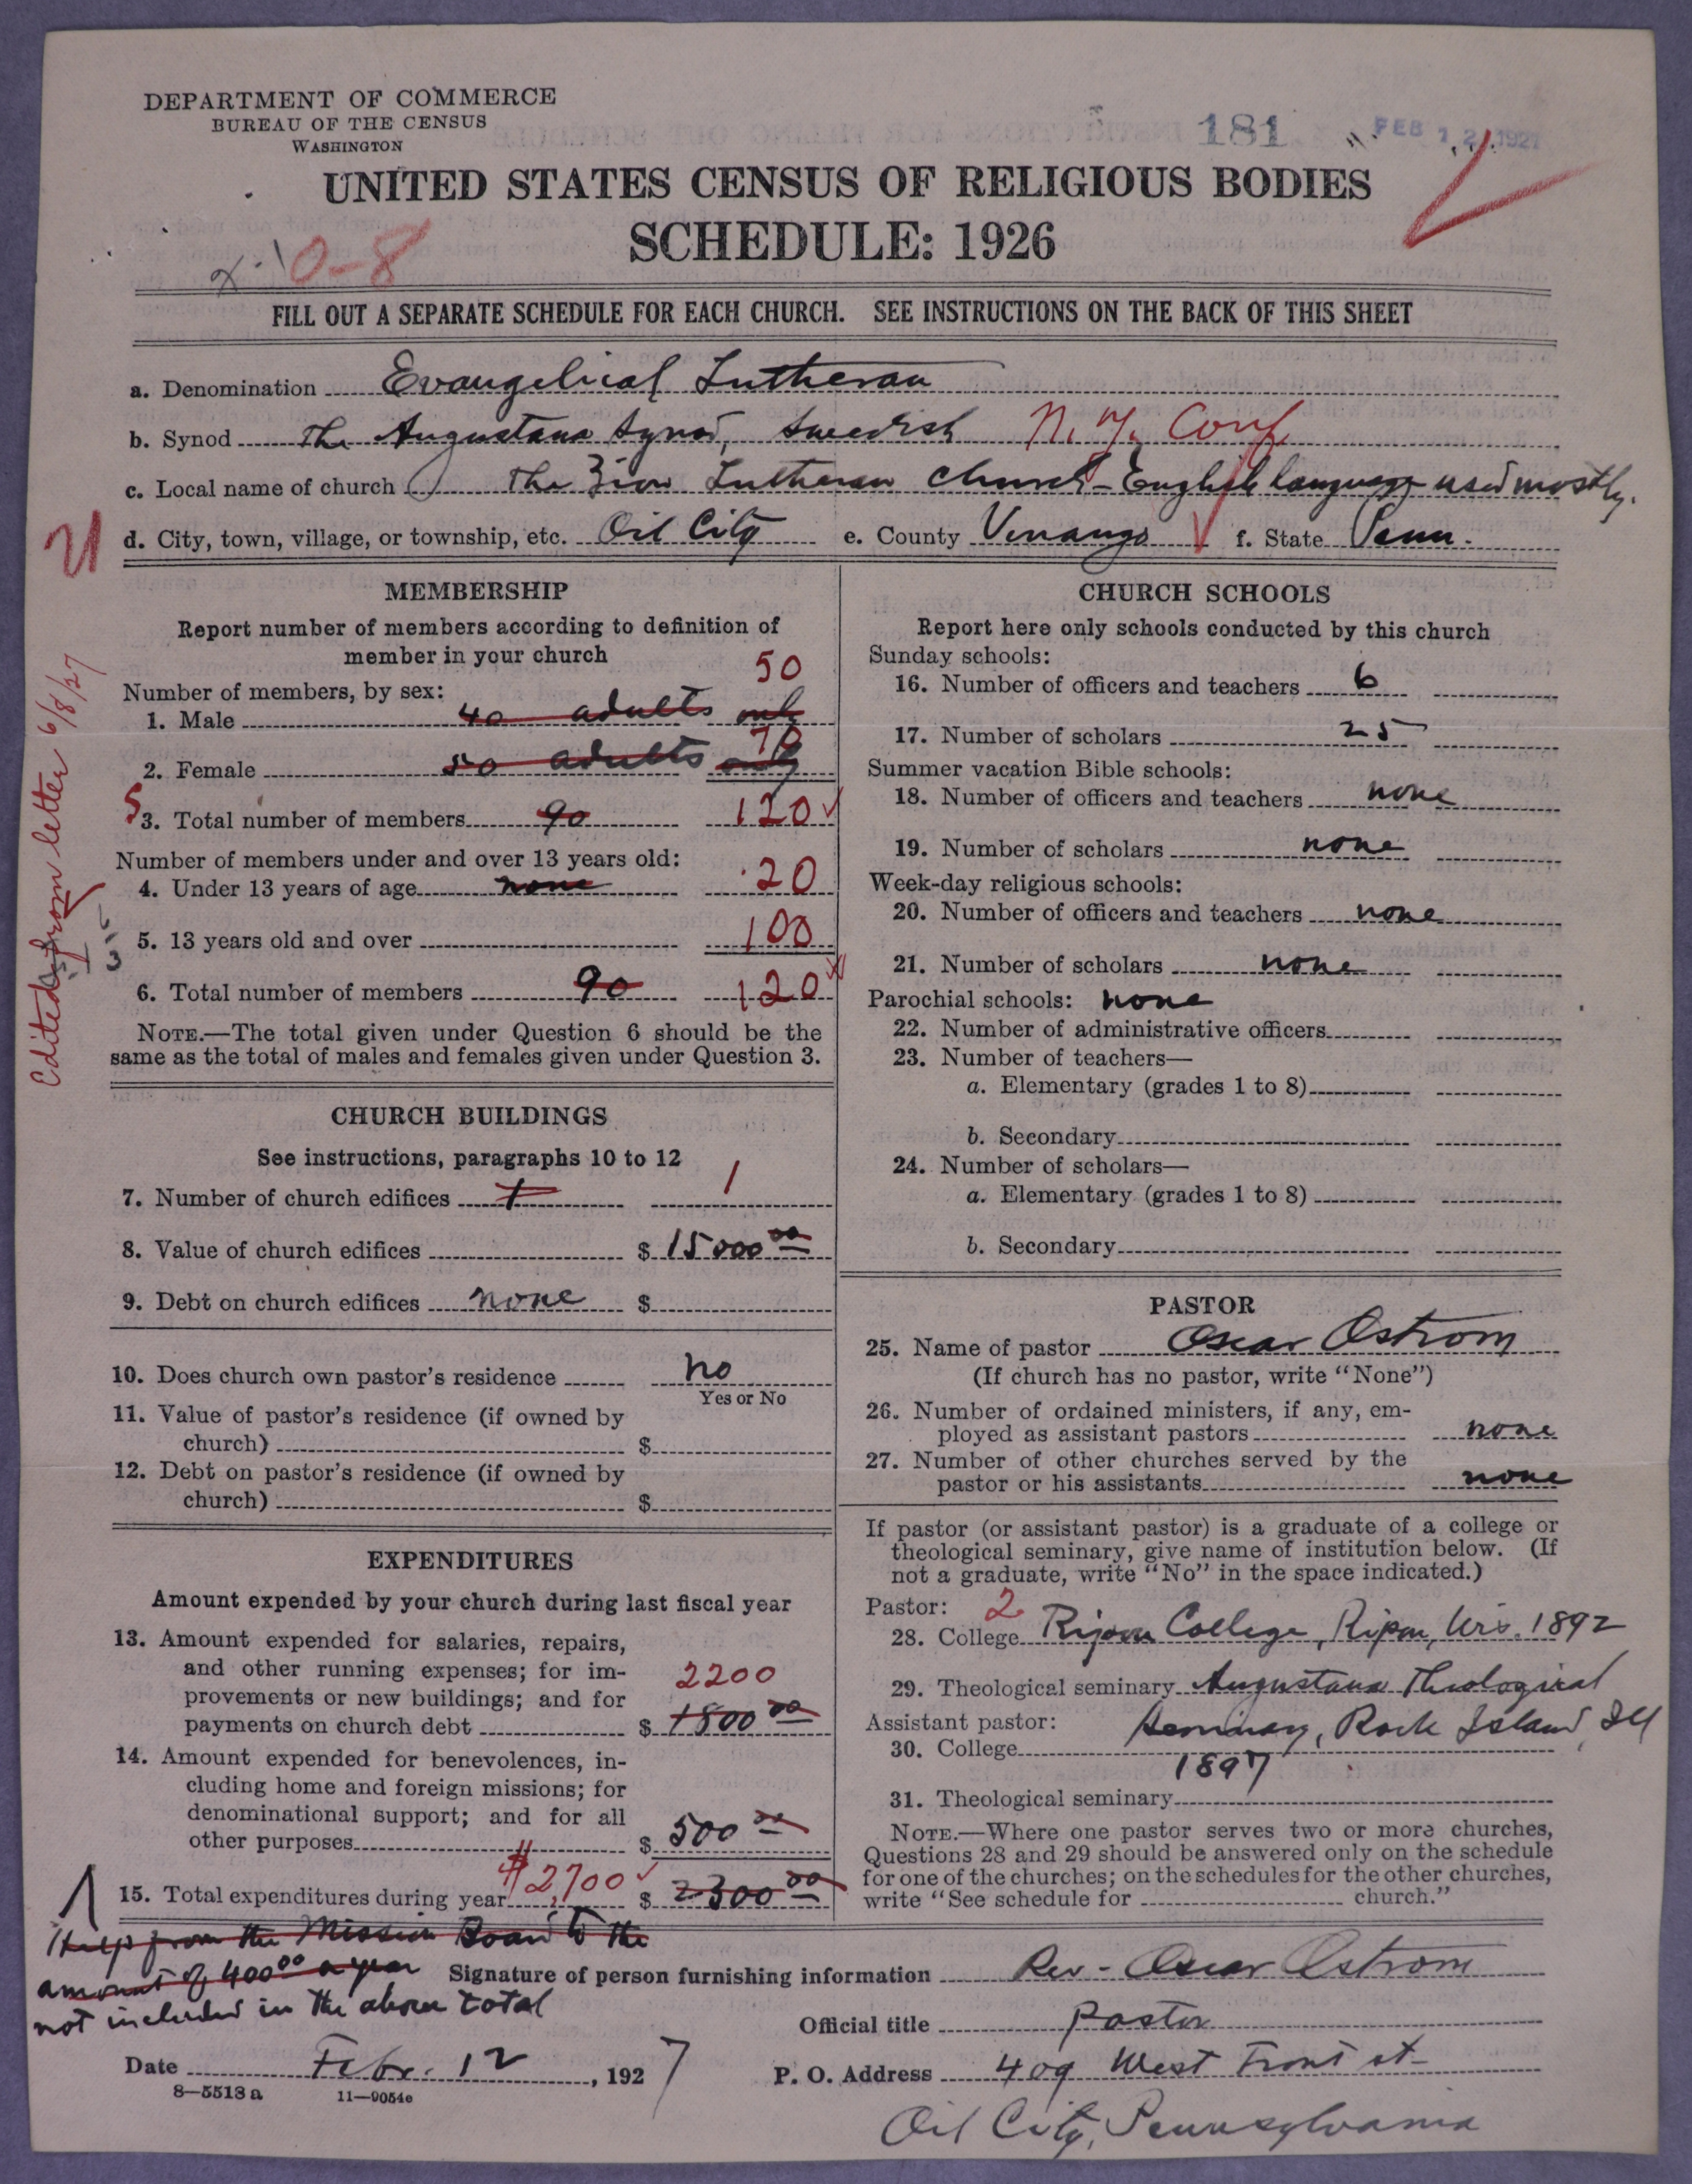 DEPARTMENT OF COMMERCE
BUREAU OF THE CENSUS
WASHINGTON
181
FEB 12 1927
UNITED STATES CENSUS OF RELIGIOUS BODIES
SCHEDULE: 1926
x-10-8
FILL OUT A SEPARATE SCHEDULE FOR EACH CHURCH. SEE INSTRUCTIONS ON THE BACK OF THIS SHEET
a. Denomination Evangelical Lutheran
b. Synod The Augustana Synod, Swedish N.Y. Conf.
c. Local name of church The Zion Lutheran Church - English language used mostly.
d. City, town, village, or township, etc. Oil City e. County Venango f. State Penn.
Edited from letter 6/8/27
MEMBERSHIP
Report number of members according to definition of
member in your church
Number of members, by sex:
50
1. Male 40 adults only
70
2. Female 50 adults only
5
3. Total number of members 90 120
Number of members under and over 13 years old:
4. Under 13 years of age none 20
5. 13 years old and over 100
6. Total number of members 90 120
NOTE.—The total given under Question 6 should be the
same as the total of males and females given under Question 3.
CHURCH BUILDINGS
See instructions, paragraphs 10 to 12
7. Number of church edifices 1 1
8. Value of church edifices $ 15000 00
9. Debt on church edifices none $
10. Does church own pastor's residence no
Yes or No
11. Value of pastor's residence (if owned by
church) $
12. Debt on pastor's residence (if owned by
church) $
EXPENDITURES
Amount expended by your church during last fiscal year
13. Amount expended for salaries, repairs,
and other running expenses; for im-
provements or new buildings; and for
2200
payments on church debt $ 1800 00
14. Amount expended for benevolences, in-
cluding home and foreign missions; for
denominational support; and for all
other purposes $ 500 00
15. Total expenditures during year $2,700 $ 2300 00
Help from the Mission Board to the
amount of 400 00 a year
not included in the above total
CHURCH SCHOOLS
Report here only schools conducted by this church
Sunday schools:
16. Number of officers and teachers 6
17. Number of scholars 25
Summer vacation Bible schools:
18. Number of officers and teachers none
19. Number of scholars none
Week-day religious schools:
20. Number of officers and teachers none
21. Number of scholars none
Parochial schools: none
22. Number of administrative officers
23. Number of teachers—
a. Elementary (grades 1 to 8)
b. Secondary
24. Number of scholars—
a. Elementary (grades 1 to 8)
b. Secondary
PASTOR
25. Name of pastor Oscar Ostrom
(If church has no pastor, write "None")
26. Number of ordained ministers, if any, em-
ployed as assistant pastors none
27. Number of other churches served by the
pastor or his assistants none
If pastor (or assistant pastor) is a graduate of a college or
theological seminary, give name of institution below. (If
not a graduate, write "No" in the space indicated.)
Pastor: 2
28. College Ripon College, Ripon, Wis. 1892
29. Theological seminary Augustana Theological
Assistant pastor: Seminary, Rock Island, Ill
30. College
1897
31. Theological seminary
NOTE.—Where one pastor serves two or more churches,
Questions 28 and 29 should be answered only on the schedule
for one of the churches; on the schedules for the other churches,
write "See schedule for church."
Signature of person furnishing information Rev - Oscar Ostrom
Official title Pastor
Date Febr. 12, 1927
P. O. Address 409 West Front st
Oil City, Pennsylvania
8—5518 a 11—9054e